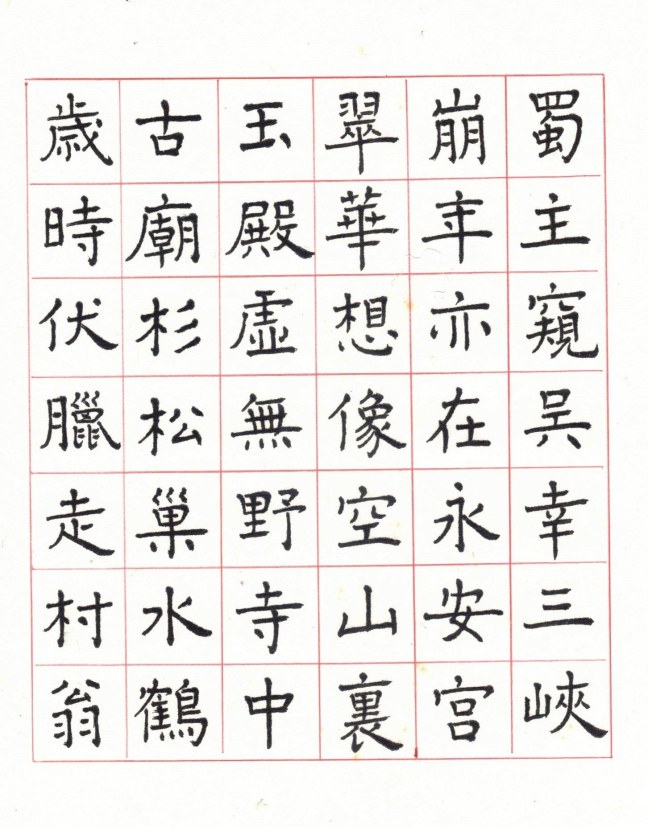 蜀主窺吳幸三峽
崩年亦在永安宮
翠華想像空山裏
玉殿虛無野寺中
古廟杉松巢水鶴
歲時伏臘走村翁